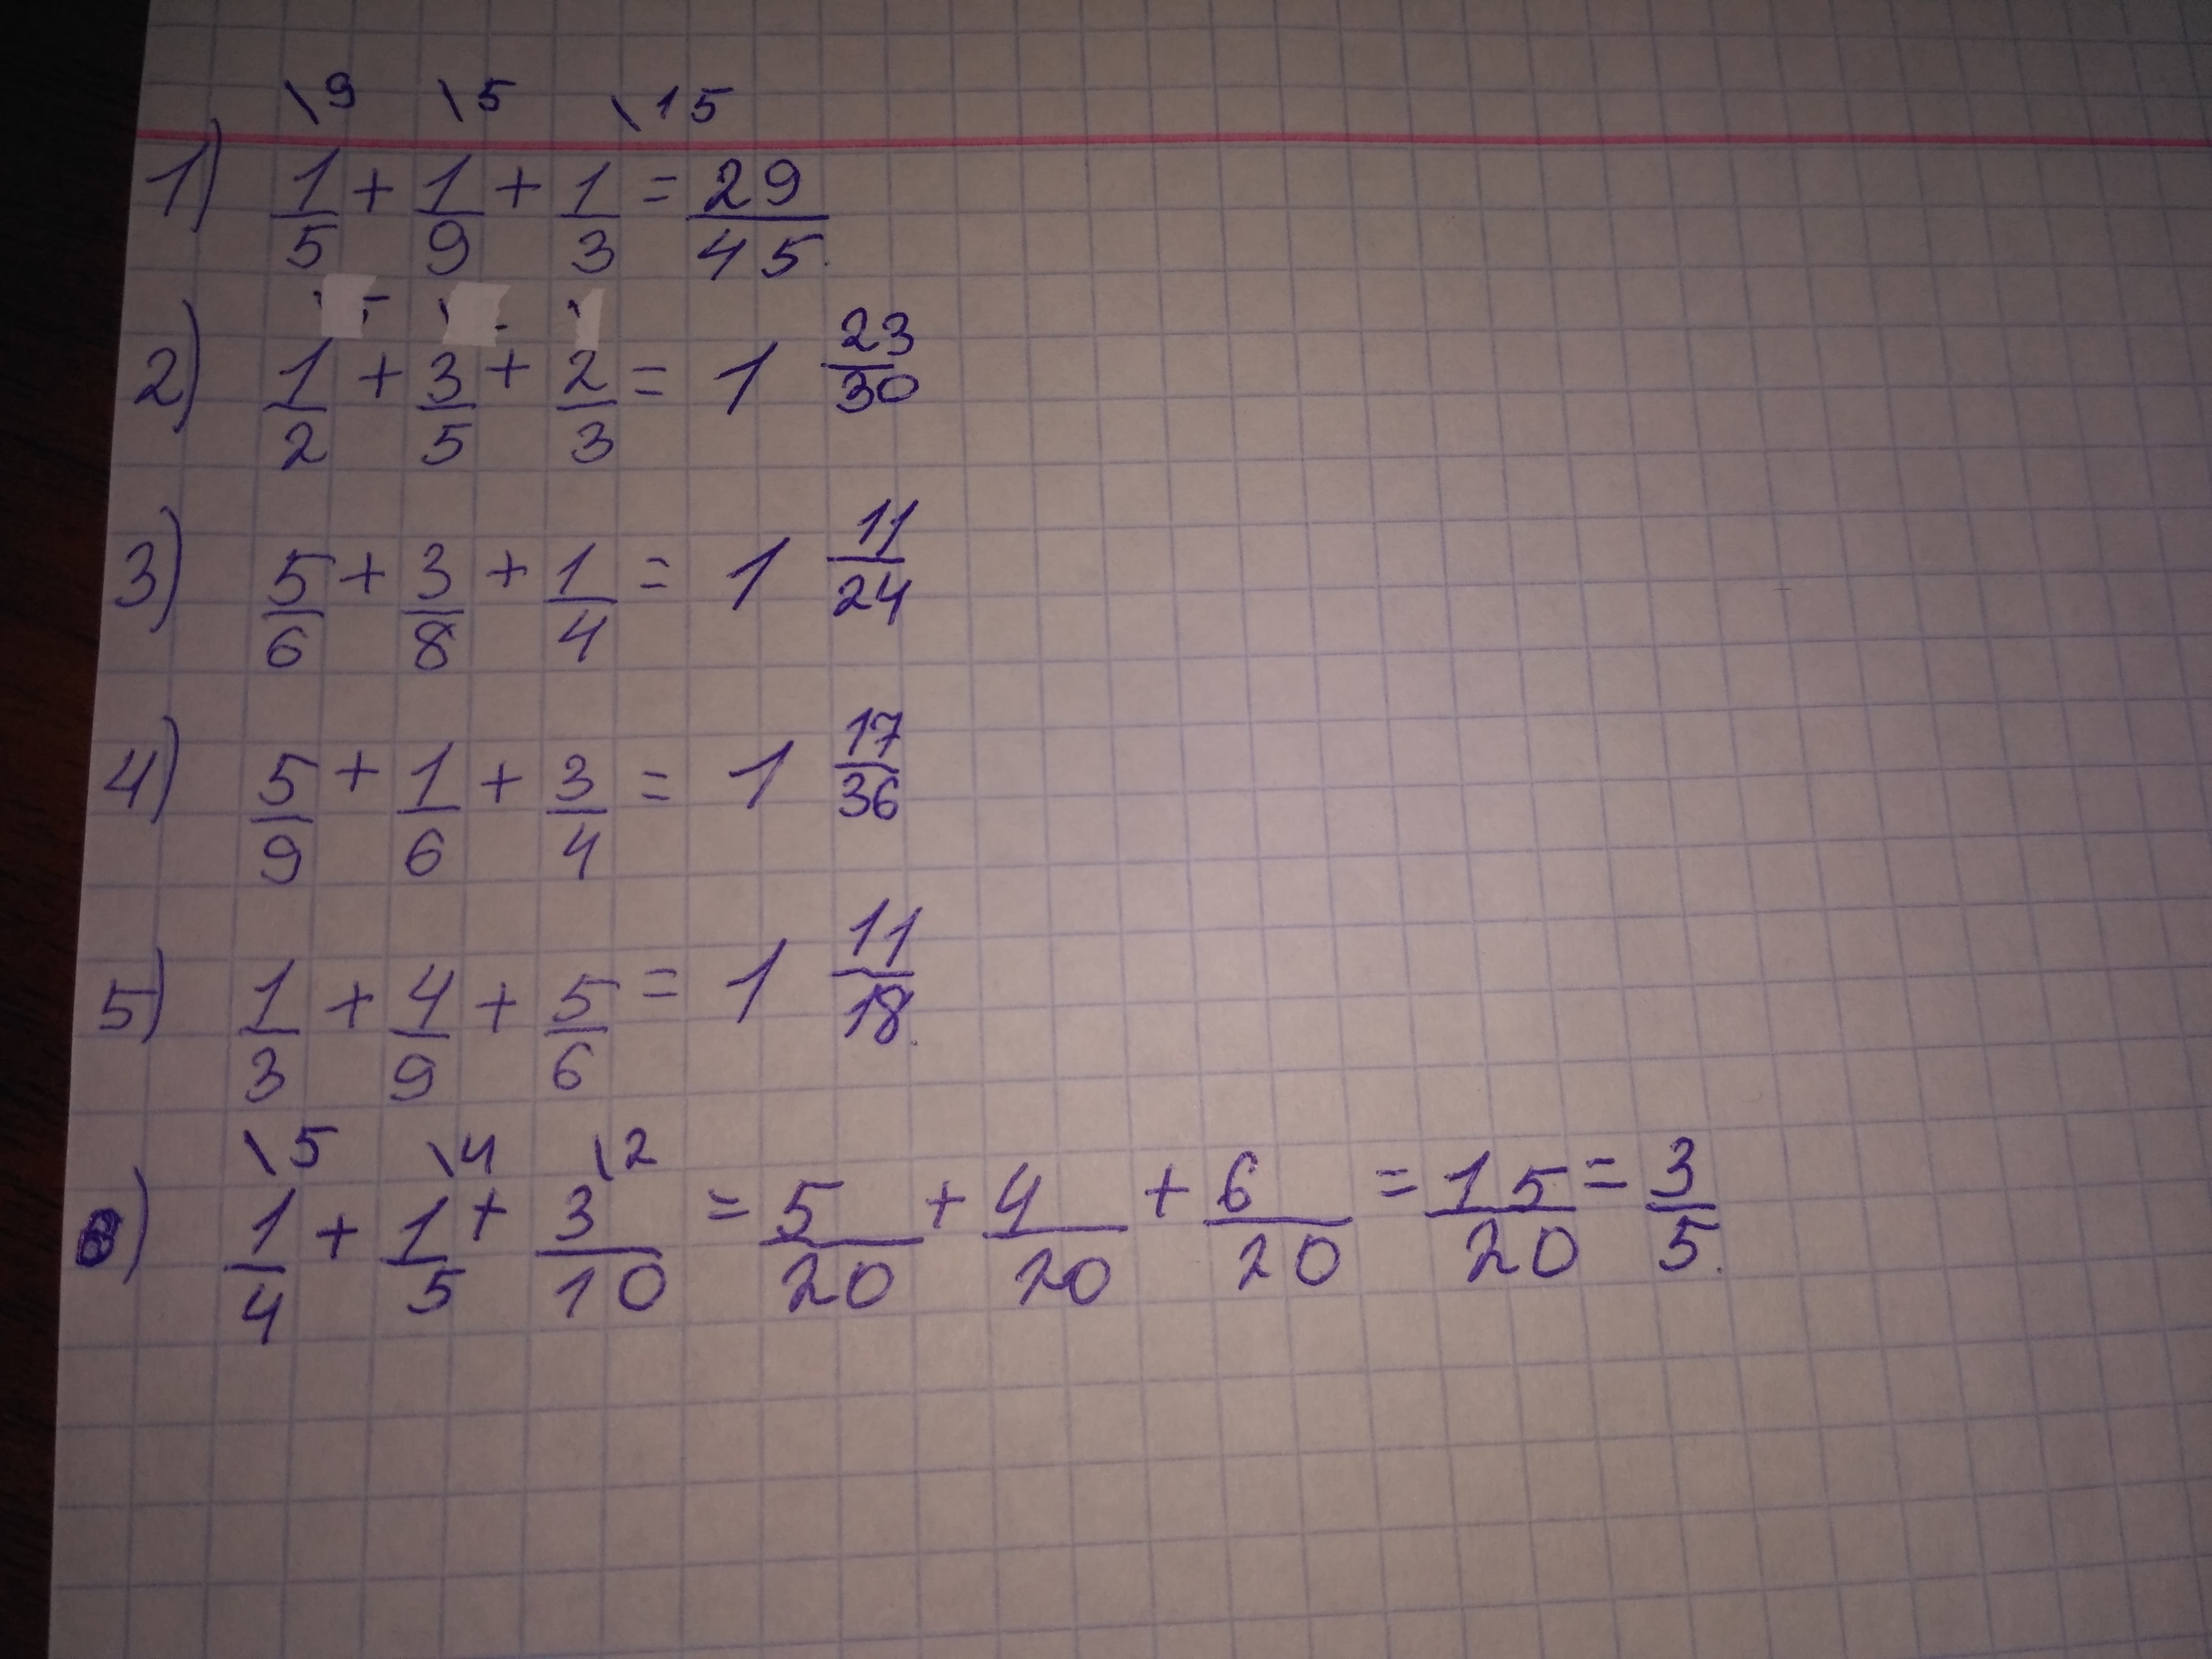 \9 \5 \15
1) 1/5 + 1/9 + 1/3 = 29/45.
2) 1/2 + 3/5 + 2/3 = 1 23/30
3) 5/6 + 3/8 + 1/4 = 1 11/24
4) 5/9 + 1/6 + 3/4 = 1 17/36
5) 1/3 + 4/9 + 5/6 = 1 11/18.
\5 \4 \2
6) 1/4 + 1/5 + 3/10 = 5/20 + 4/20 + 6/20 = 15/20 = 3/5.